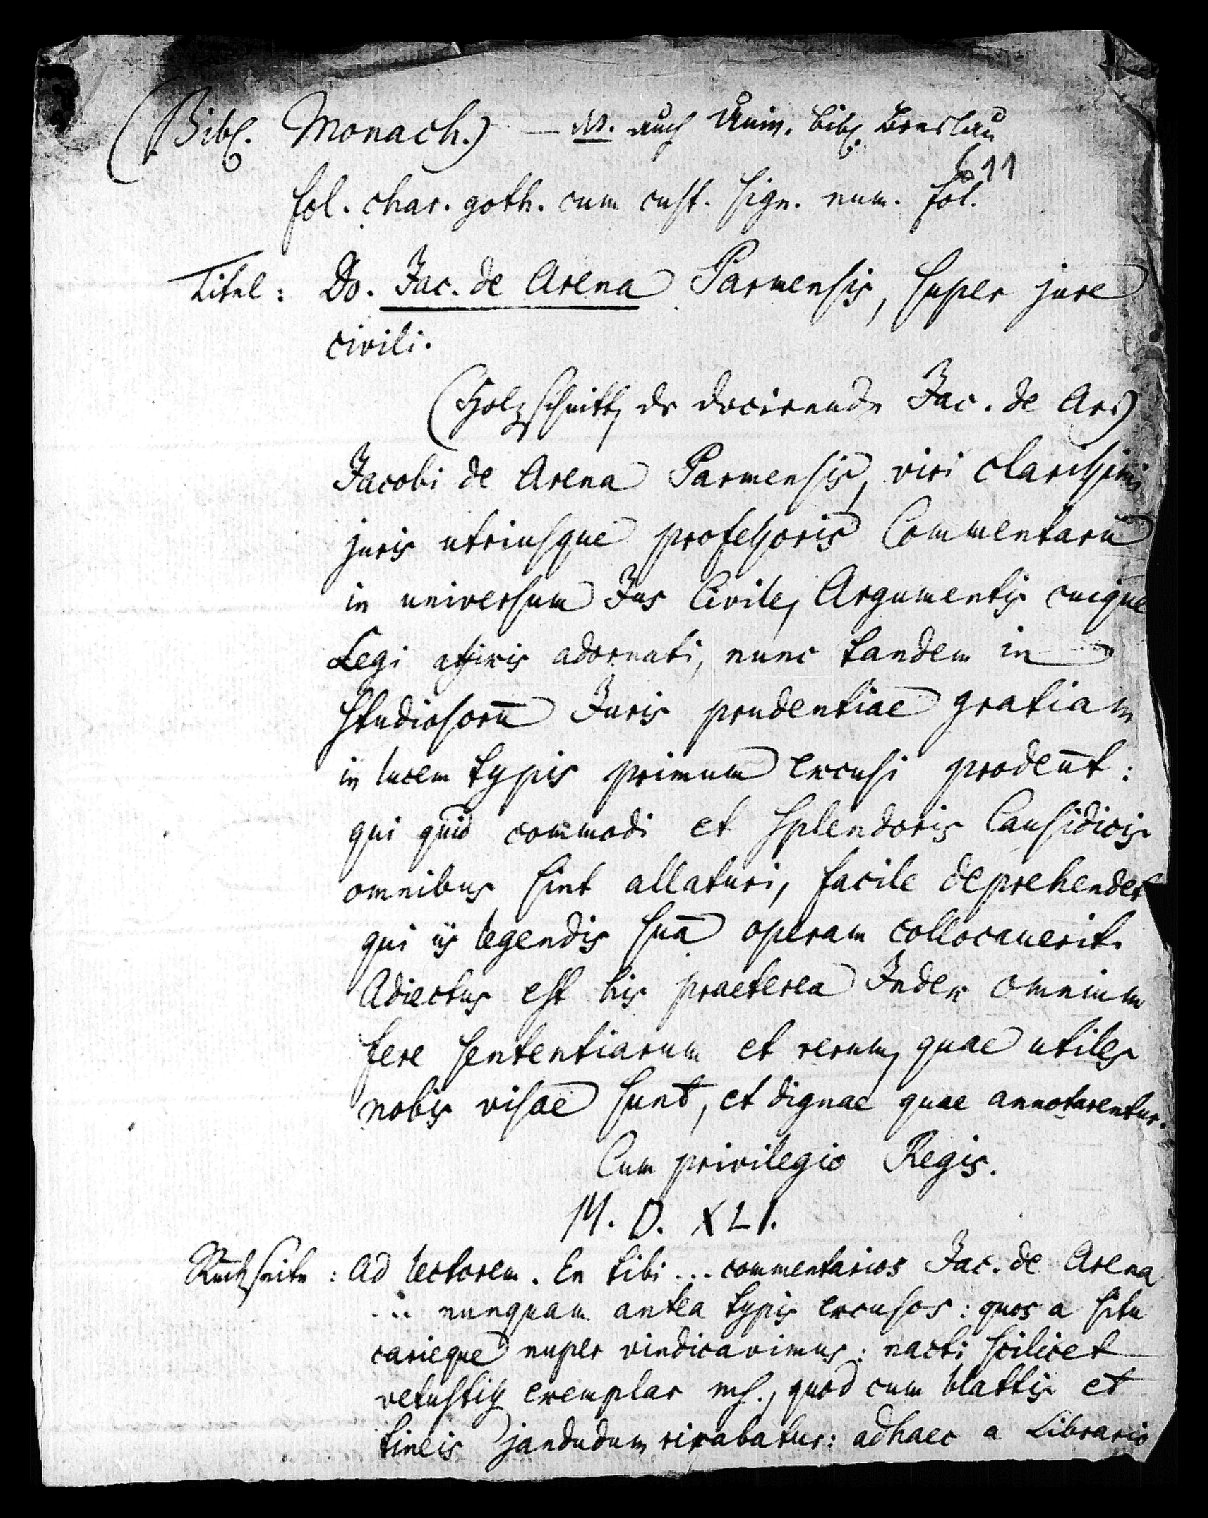 (Bibl. Monach.) — NB. auch Univ. bibl. Breslau
611
fol. char. goth. cum cust. sign. num. fol.
Titel: Do. Jac. de Arena Parmensis, super jure
civili.
(Holzschnitt, der docirende Jac. de Ar.)
Jacobi de Arena Parmensis, viri clarissimi
juris utriusque professoris Commentarii
in universum Jus Civile, Argumentis cuique
Legi assuis adornati, nunc tandem in
studiosorū Juris prudentiae gratiam
in lucem typis primum excusi prodeūt:
qui quid commodi et splendoris Causidicis
omnibus sint allaturi, facile deprehendet
qui iis legendis suā operam collocauerit.
Adiectus est his praeterea Index omnium
fere sententiarum et rerum, quae utiles
nobis visae sunt, et dignae quae annotarentur.
Cum privilegio Regis.
M. D. XLI.
Rückseite: Ad lectorem. En tibi ... commentarios Jac. de Arena
... nunquam antea typis excusos: quos a situ
carieque nuper vindicavimus: nacti scilicet
vetustiss exemplar ms., quod cum blattis et
tineis jandudum rixabatur: adhaec a Librario